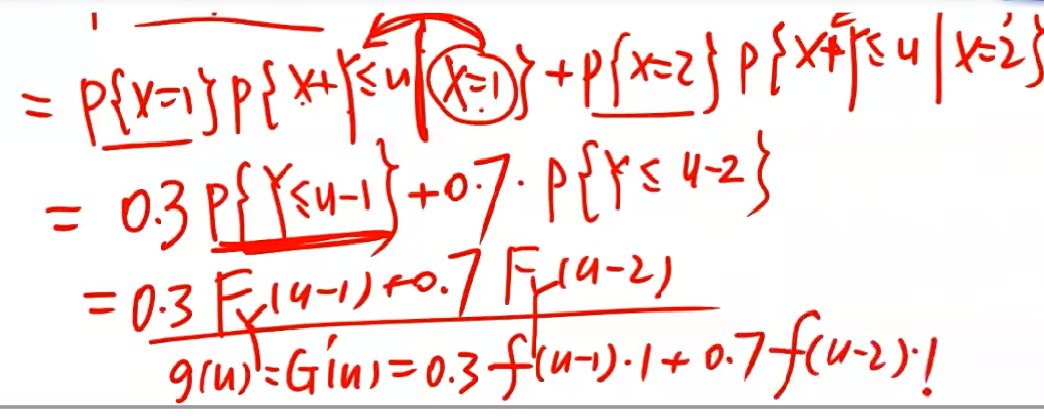 = P{X=1}P{X+Y≤u|X=1}+P{X=2}P{X+Y≤u|X=2}
= 0.3 P{Y≤u-1}+0.7·P{Y≤u-2}
= 0.3 F_Y(u-1)+0.7 F_Y(u-2)
g(u)=G'(u)=0.3 f(u-1)·1+0.7 f(u-2)·1